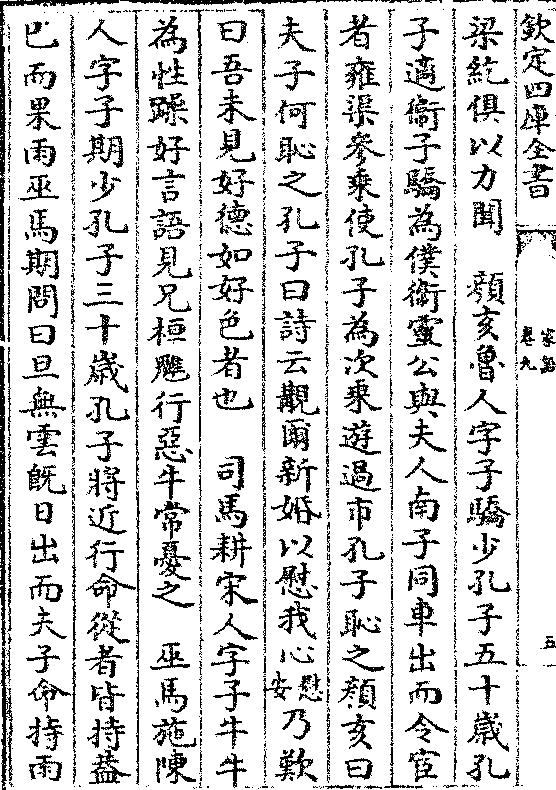 欽定四庫全書
家語
卷九
五
梁紇俱以力聞　顔亥魯人字子驕少孔子五十歲孔
子適衞子驕為僕衞靈公與夫人南子同車出而令宦
者雍渠參乘使孔子為次乘遊過市孔子恥之顔亥曰
夫子何恥之孔子曰詩云覯爾新婚以慰我心慰安乃歎
曰吾未見好德如好色者也　司馬耕宋人字子牛牛
為性躁好言語見兄桓魋行惡牛常憂之　巫馬施陳
人字子期少孔子三十歲孔子將近行命從者皆持葢
巳而果雨巫馬期問曰旦無雲旣日出而夫子命持雨